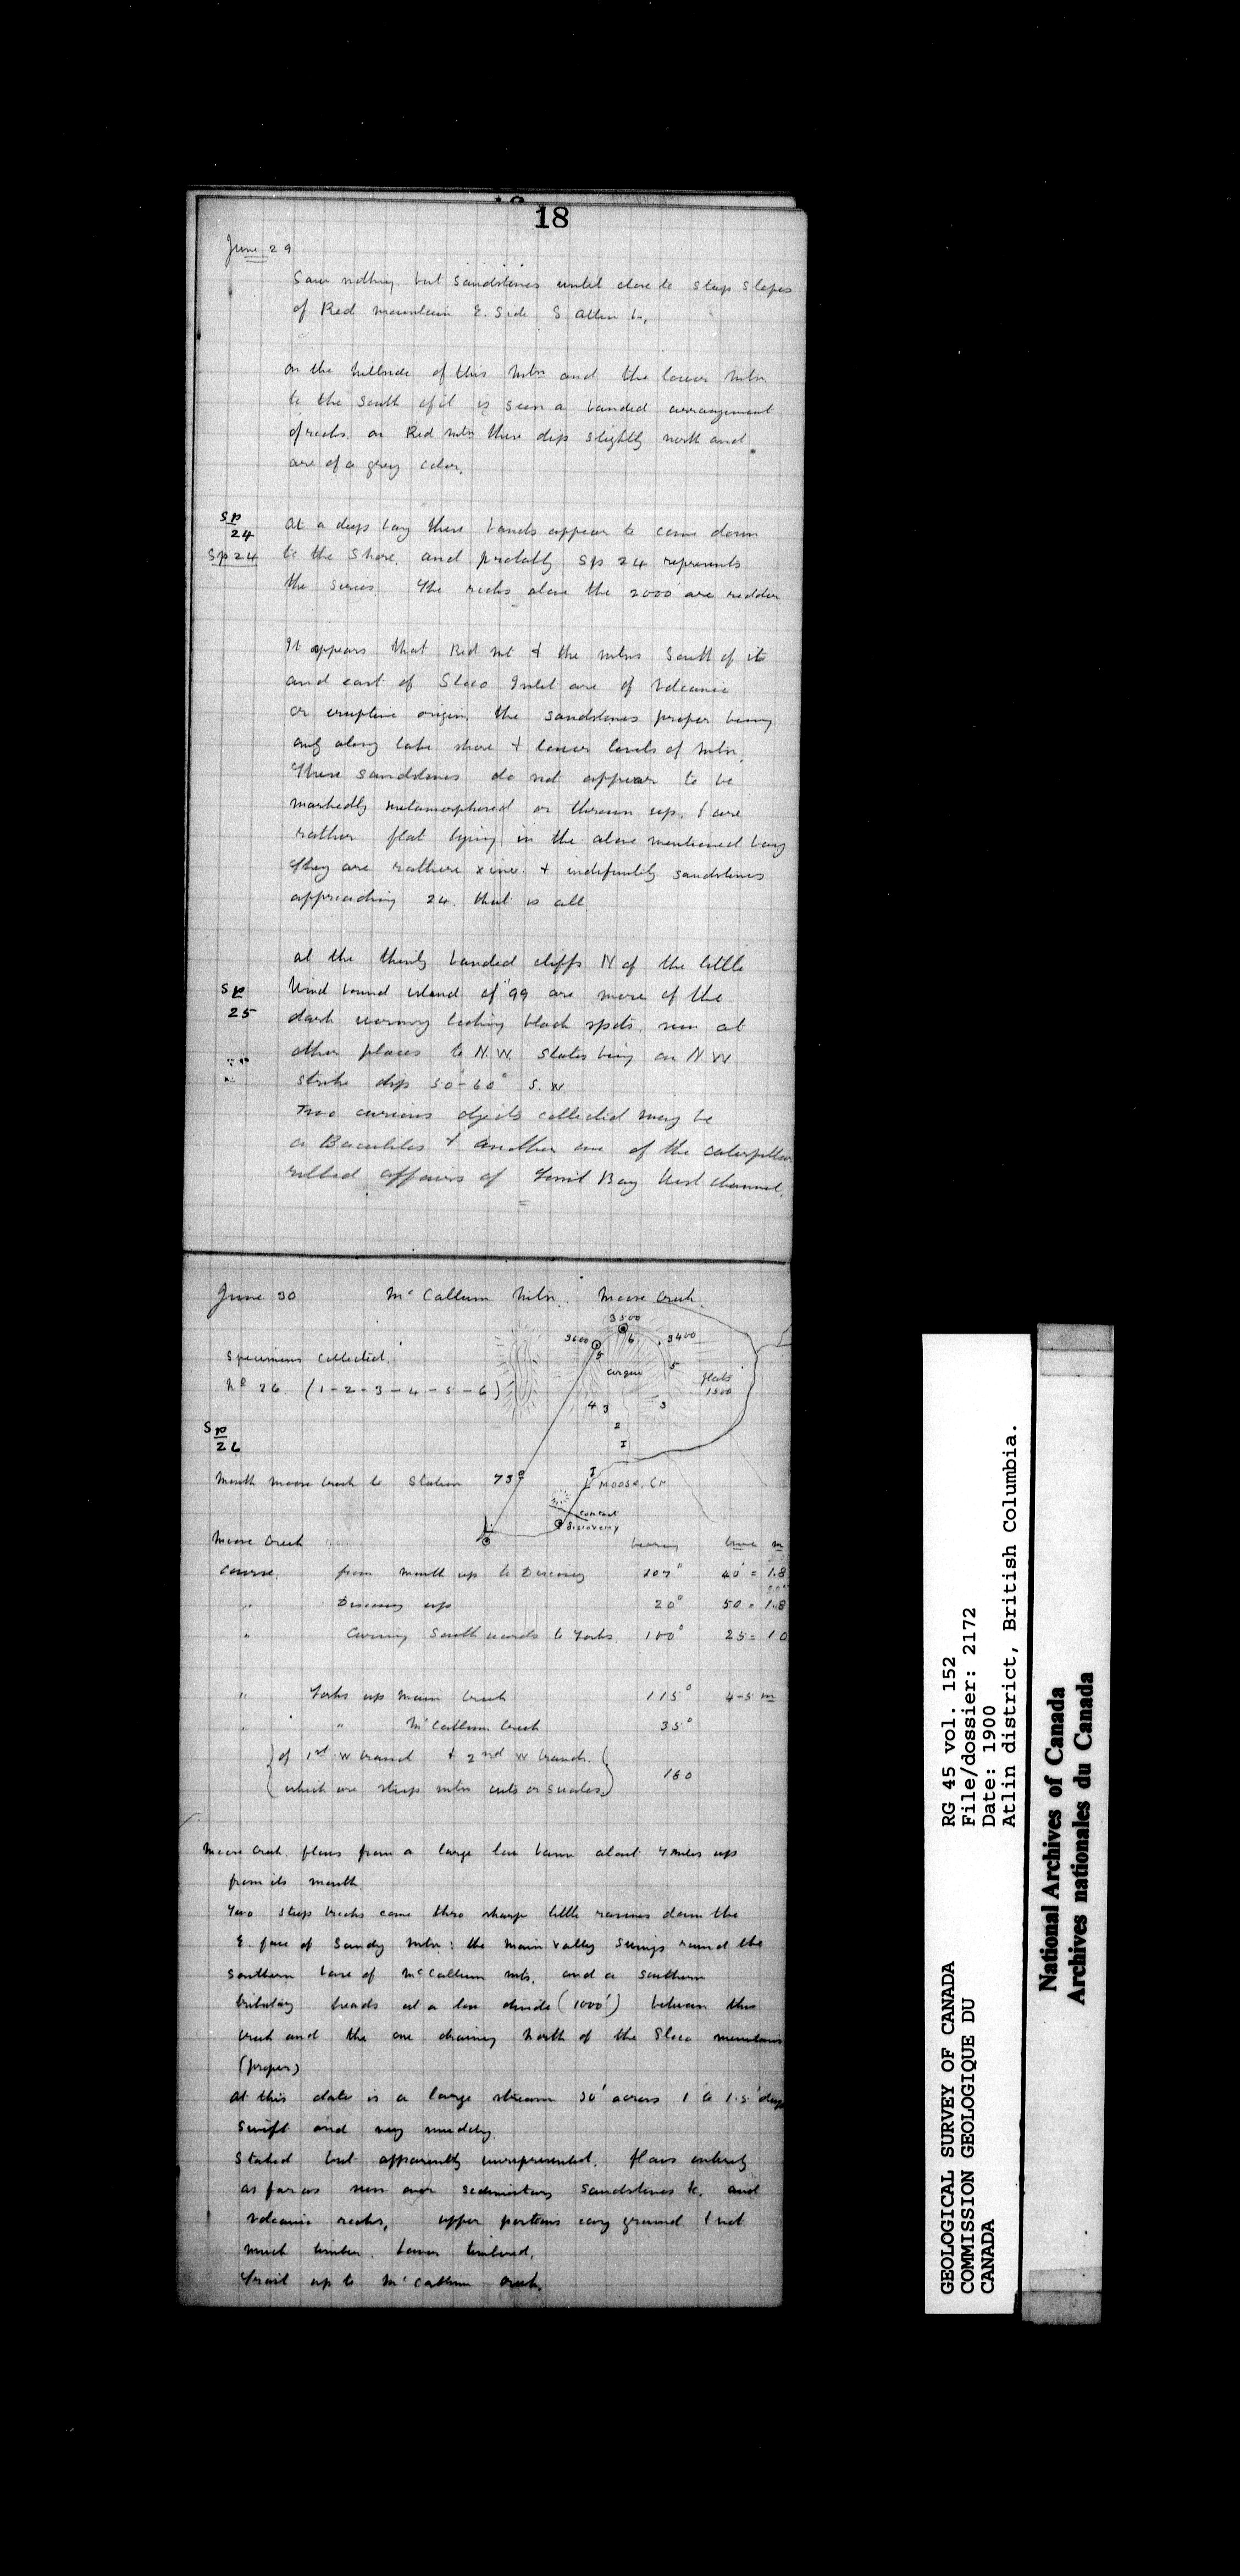 18
June 29
Saw nothing but sandstones until close to steep slopes
of Red mountain E. Side S Atlin L.
on the hillside of this mtn and the lower mtn
to the South of it is seen a banded arrangement
of rocks. on Red mtn these dip slightly north and
are of a grey color.
Sp
24
Sp 24
At a deep bay these bands appear to come down
to the shore. and probably sp 24 represents
the series. The rocks above the 2000' are redder
It appears that Red mt & the mtns South of it
and east of Sloco Inlet are of volcanic
or eruptive origin. the sandstones proper being
only along lake shore & lower levels of mtn.
These sandstones do not appear to be
markedly metamorphosed or thrown up. & are
rather flat lying in the above mentioned bay
they are rathere xine. & indefinitely sandstones
approaching 24. that is all
Sp
25
at the thinly banded cliffs N of the little
Wind bound island of '99 are more of the
dark looking black spots. seen at
other places to N.W. slates being on N W
strike dip 50°-60° S.W.
Two curious objects collected may be
a Baculites & another one of the caterpillar
ribbed affairs of Fossil Bay West channel.
June 30 McCallum Mtn. Moose Creek.
3500
3600
6
3400
5
5
cirque
flats
1500
4 3
3
2
I
I
Specimens collected.
No 26 (1-2-3-4-5-6)
Sp
26
Mouth moose Creek to Station 73°
MOOSE. Cr
contact
discovery
Moose Creek bearing time m
Course. from mouth up to Discovery 107° 40' = 1.8
" Discovery up 20° 50 = 1.8
" Curving Southwards to Forks. 100° 25 = 1.0
" Forks up Main Creek 115° 4-5 m
" " McCallum Creek 35°
of 1st W branch & 2nd W branch.
(which are steep mtn cuts or) 160
Moose Creek. flows from a large low basin about 7 miles up
from its mouth.
Two steep creeks come thro sharp little ravines down the
E. face of Sandy mtn: the main valley swings round the
southern base of McCallum mts. and a southern
tributary heads at a low divide (1000') between this
creek and the one draining North of the Sloco mountains
(proper)
At this date is a large stream 30' across 1 to 1.5' deep
swift and very muddy.
Staked but apparently unrepresented. flows entirely
as far as seen over sedimentary sandstones &c. and
volcanic rocks, upper portions easy ground & not
much timber. Lower timbered.
Trail up to McCallum creek.
GEOLOGICAL SURVEY OF CANADA
COMMISSION GEOLOGIQUE DU
CANADA
RG 45 vol. 152
File/dossier: 2172
Date: 1900
Atlin district, British Columbia.
National Archives of Canada
Archives nationales du Canada